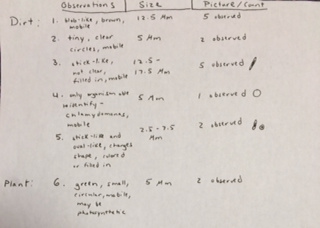 Observations Size Picture/Count
Dirt: 1. blob-like, brown, 12.5 Mm 5 observed
mobile
2. tiny, clear 5 Mm 2 observed
circles, mobile
3. stick-like, 12.5 - 5 observed
not clear, 17.5 Mm
filled in, mobile
4. only organism able 5 Mm 1 observed
to identify -
chlamydomonas,
mobile
5. stick-like and 2.5 - 7.5 2 observed
oval-like, changes Mm
shape, 
or filled in
Plant: 6. green, small, 5 Mm 2 observed
circular, mobile,
may be
photosynthetic